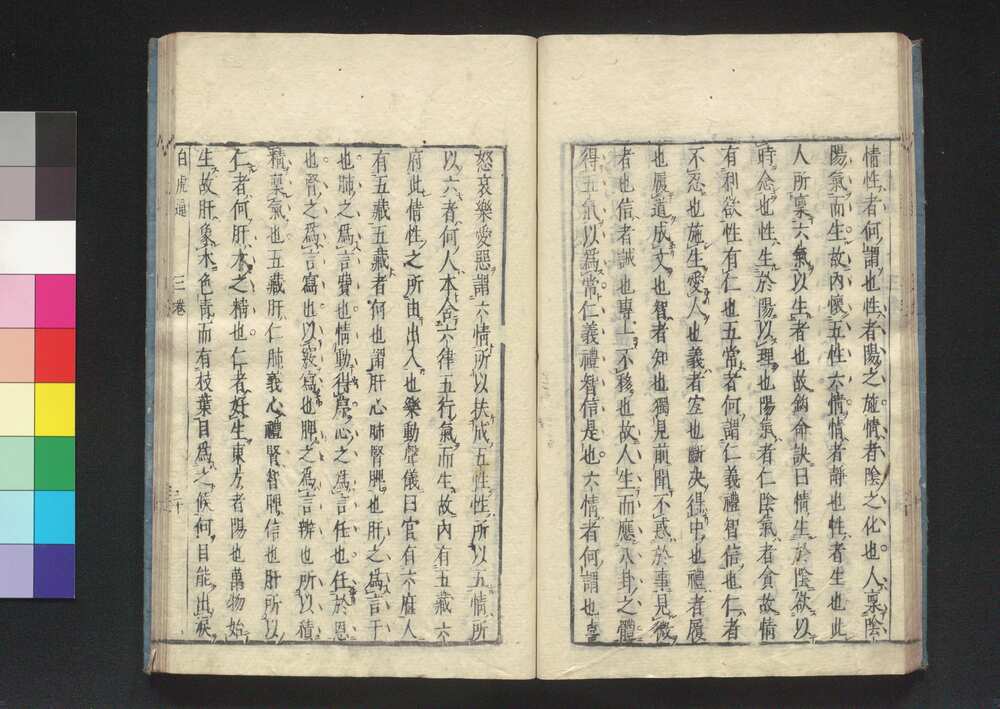 情性者何謂也性者陽之施情者陰之化也人稟陰
陽氣而生故內懷五性六情情者靜也性者生也此
人所稟六氣以生者也故鈎命訣曰情生於陰欲以
時念也性生於陽以理也陽氣者仁陰氣者貪故情
有利欲性有仁也五常者何謂仁義禮智信也仁者
不忍也施生愛人也義者宜也斷決得中也禮者履
也履道成文也智者知也獨見前聞不惑於事見微
者也信者誠也專一不移也故人生而應八卦之體
得五氣以爲常仁義禮智信是也六情者何謂也喜
怒哀樂愛惡謂六情所以扶成五性性所以五情所
以六者何人本含六律五行氣而生故內有五藏六
府此情性之所由出入也樂動聲儀曰官有六府人
有五藏五藏者何也謂肝心肺腎脾也肝之爲言干
也肺之爲言費也情動得序心之爲言任也任於恩
也腎之爲言寫也以竅寫也脾之爲言辨也所以積
精稟氣也五藏肝仁肺義心禮腎智脾信也肝所以
仁者何肝木之精也仁者好生東方者陽也萬物始
生故肝象木色青而有枝葉目爲之候何目能出淚
白虎通 三卷 三十